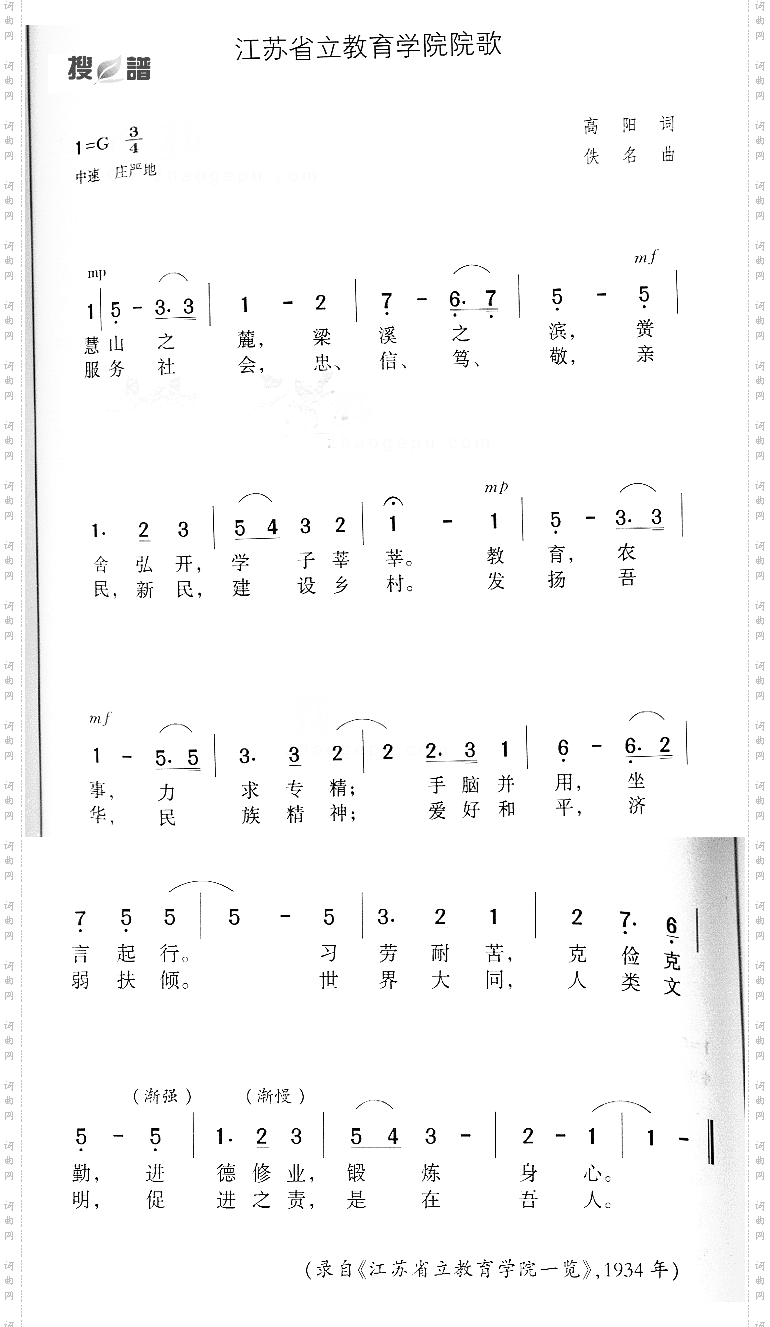 江苏省立教育学院院歌
搜 谱
1=G 3/4
高 阳 词
中速 庄严地
佚 名 曲
mp mf
1 | 5 - 3. 3 | 1 - 2 | 7 - 6. 7 | 5 - 5 |
慧 山 之 麓， 梁 溪 之 滨， 黉
服 务 社 会， 忠、 信、 笃、 敬， 亲
mp
1. 2 3 | 5 4 3 2 | 1 - 1 | 5 - 3. 3 |
舍 弘 开， 学 子 莘 莘。 教 育， 农
民， 新 民， 建 设 乡 村。 发 扬 吾
mf
1 - 5. 5 | 3. 3 2 | 2 2. 3 1 | 6 - 6. 2 |
事， 力 求 专 精； 手 脑 并 用， 坐
华， 民 族 精 神； 爱 好 和 平， 济
7 5 5 | 5 - 5 | 3. 2 1 | 2 7. 6 |
言 起 行。 习 劳 耐 苦， 克 俭 克
弱 扶 倾。 世 界 大 同， 人 类 文
(渐强) (渐慢)
5 - 5 | 1. 2 3 | 5 4 3 - | 2 - 1 | 1 - ‖
勤， 进 德 修 业， 锻 炼 身 心。
明， 促 进 之 责， 是 在 吾 人。
(录自《江苏省立教育学院一览》, 1934 年)